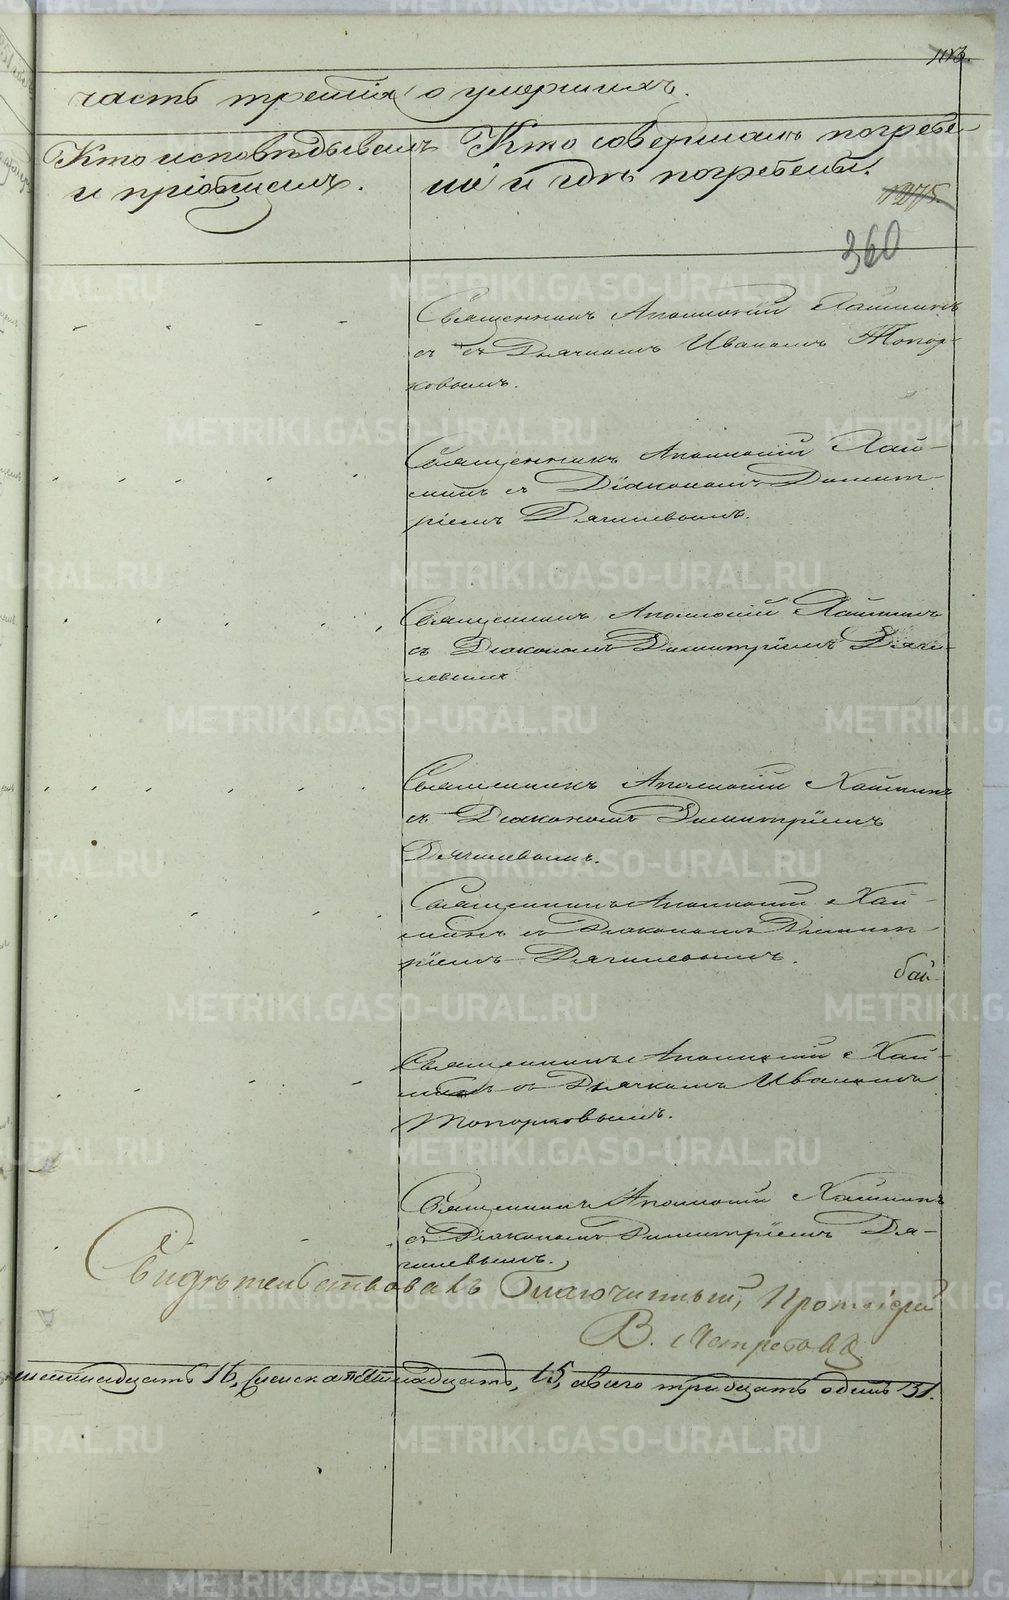 часть третія о умершихъ.
Кто исповѣдывалъ
и пріобщалъ.
Кто совершалъ погребе-
ніе и гдѣ погребены.
1275.
360
Священникъ Аполлоній Хаймин
съ Дьячкомъ Иваномъ Топор-
ковымъ.
Священникъ Аполлоній Хай-
минъ съ Діакономъ Димит-
ріемъ Дягилевымъ.
Священникъ Аполлоній Хайминъ
съ Діакономъ Димитріемъ Дяги-
левымъ
Священникъ Аполлоній Хайминъ
съ Діакономъ Димитріемъ
Дягилевымъ.
Священникъ Аполлоній Хай-
минъ съ Діакономъ Димит-
ріемъ Дягилевымъ.
бай
Священникъ Аполлоній Хай-
съ Дьячкомъ Иваномъ
Топорковымъ.
Священникъ Аполлоній Хайминъ
съ Діакономъ Димитріемъ Дя-
гилевымъ.
Свидѣтельствовалъ Благочинный, Протоіерей
В.
шестнадцать 16, женска пятнадцать, 15, а всего тридцать одинъ 31.
METRIKI.GASO-URAL.RU